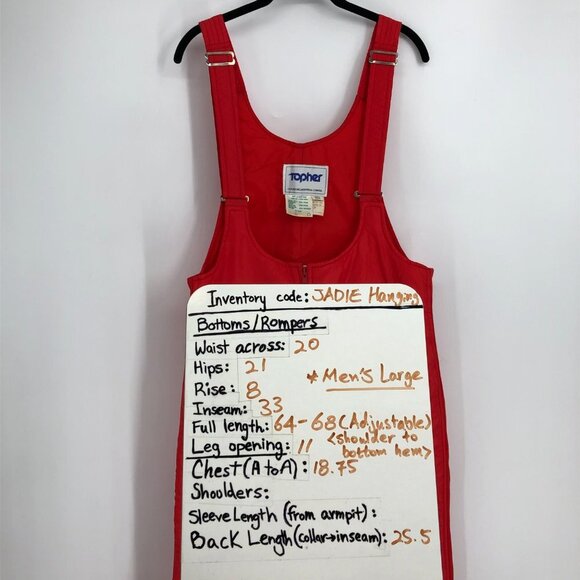 Topher
Inventory code: JADIE Hanging
Bottoms/Rompers
Waist across: 20
Hips: 21
* Men's Large
Rise: 8
Inseam: 33
Full length: 64-68 (Adjustable)
<shoulder to
bottom hem>
Leg opening: 11
Chest (A to A): 18.75
Shoulders:
Sleeve Length (from armpit):
Back Length (collar→inseam): 25.5